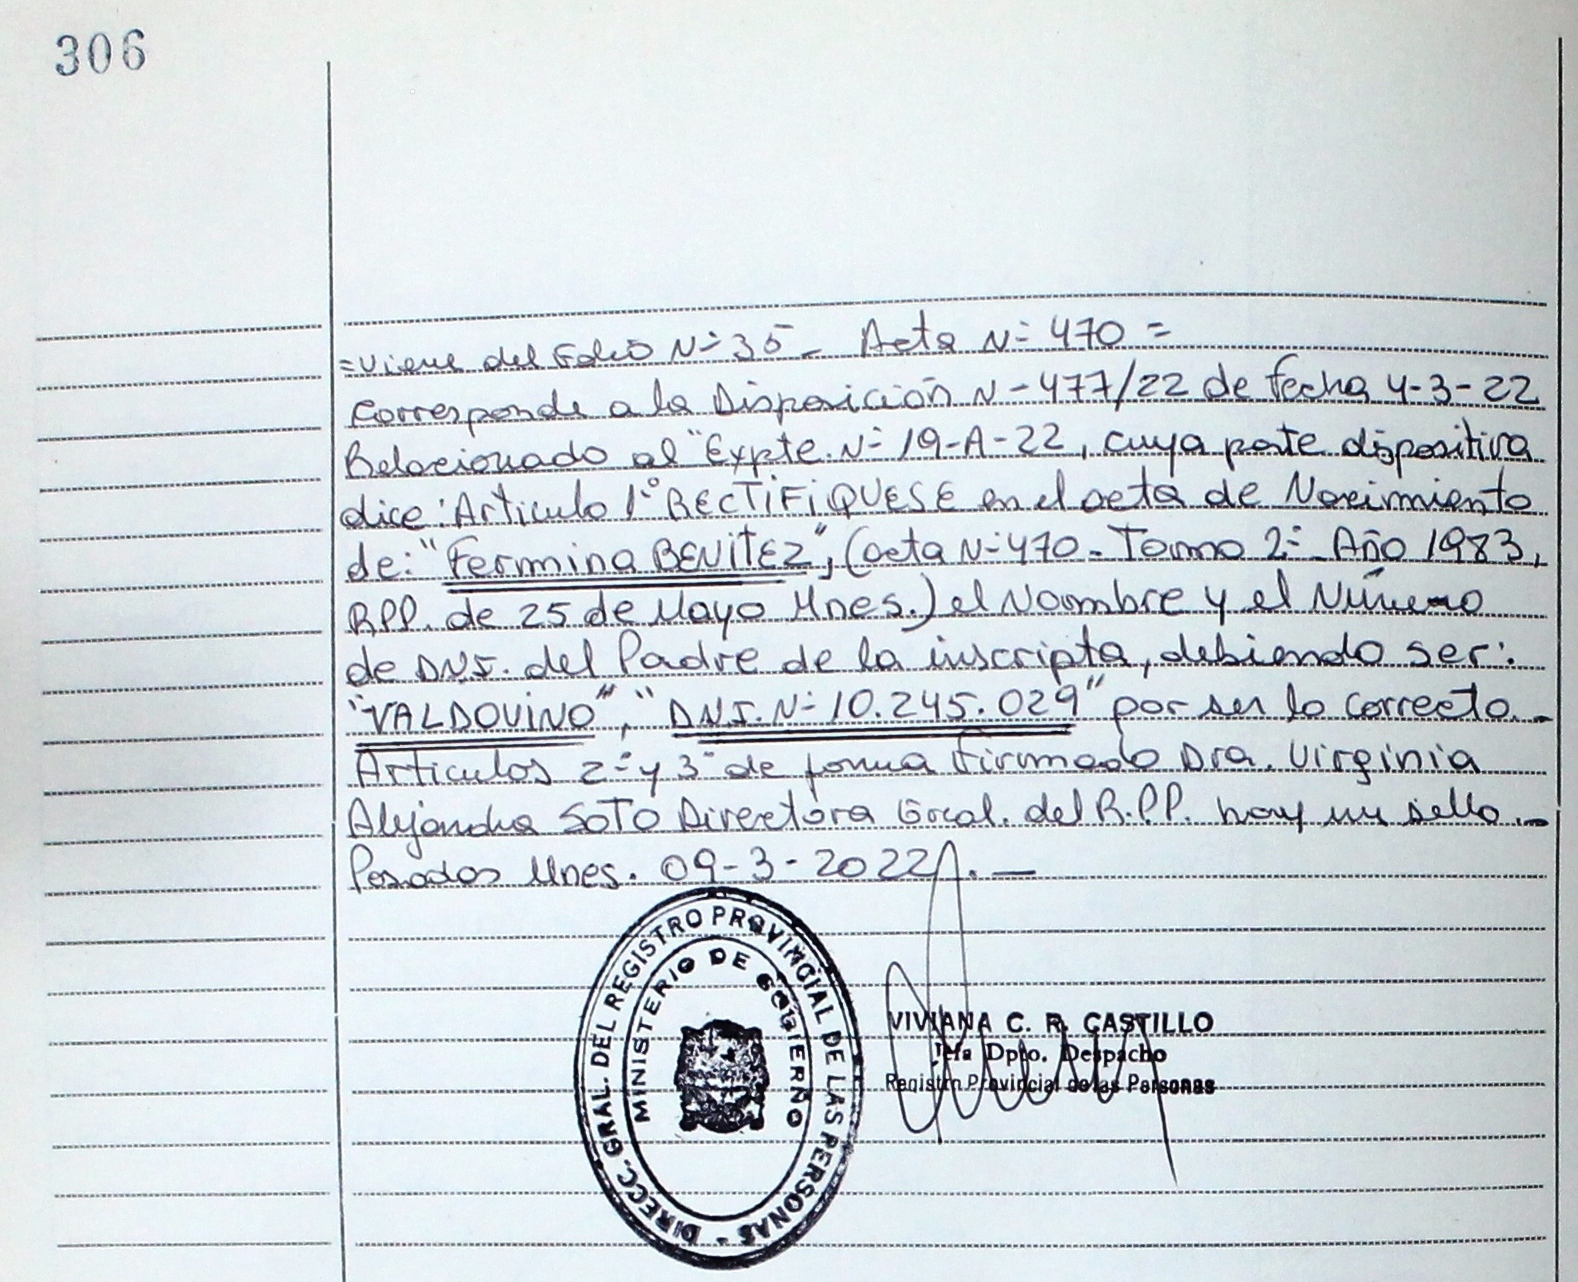 306
=Viene del Folio N° 35_ Acta N° 470 =
Corresponde a la Disposición N-477/22 de fecha 4-3-22
Relacionado al "Expte. N° 19-A-22, cuya parte dispositiva
dice: Articulo 1° RECTIFIQUESE en el acta de Nacimiento
de: "Fermina BENITEZ", (acta N° 470_ Tomo 2°_ Año 1983,
R.P.P. de 25 de Mayo Mnes.) el Nombre y el Número
de D.N.I. del Padre de la inscripta, debiendo ser:
"VALDOVINO", "D.N.I. N° 10.245.029" por ser lo correcto._
Articulos 2° y 3° de forma Firmado Dra. Virginia
Alejandra SOTO Directora Gral. del R.P.P. hay un sello._
Posadas Mnes. 09-3-2022.—
DIRECC. GRAL. DEL REGISTRO PROVINCIAL DE LAS PERSONAS -
MINISTERIO DE GOBIERNO
VIVIANA C. R. CASTILLO
Jefa Dpto. Despacho
Registro Provincial de las Personas